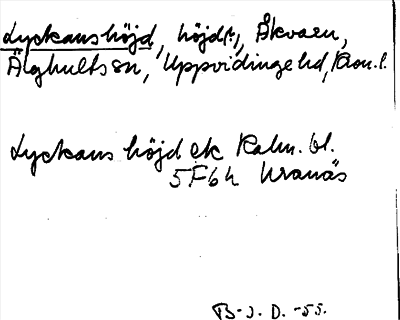 Lyckans höjd, höjd(?), Åkvarn,
Älghults sn, Uppvidinge hd, Kron. l.
Lyckans höjd ek Kalm. bl.
5F6h Uranäs
B-J. D. -55.